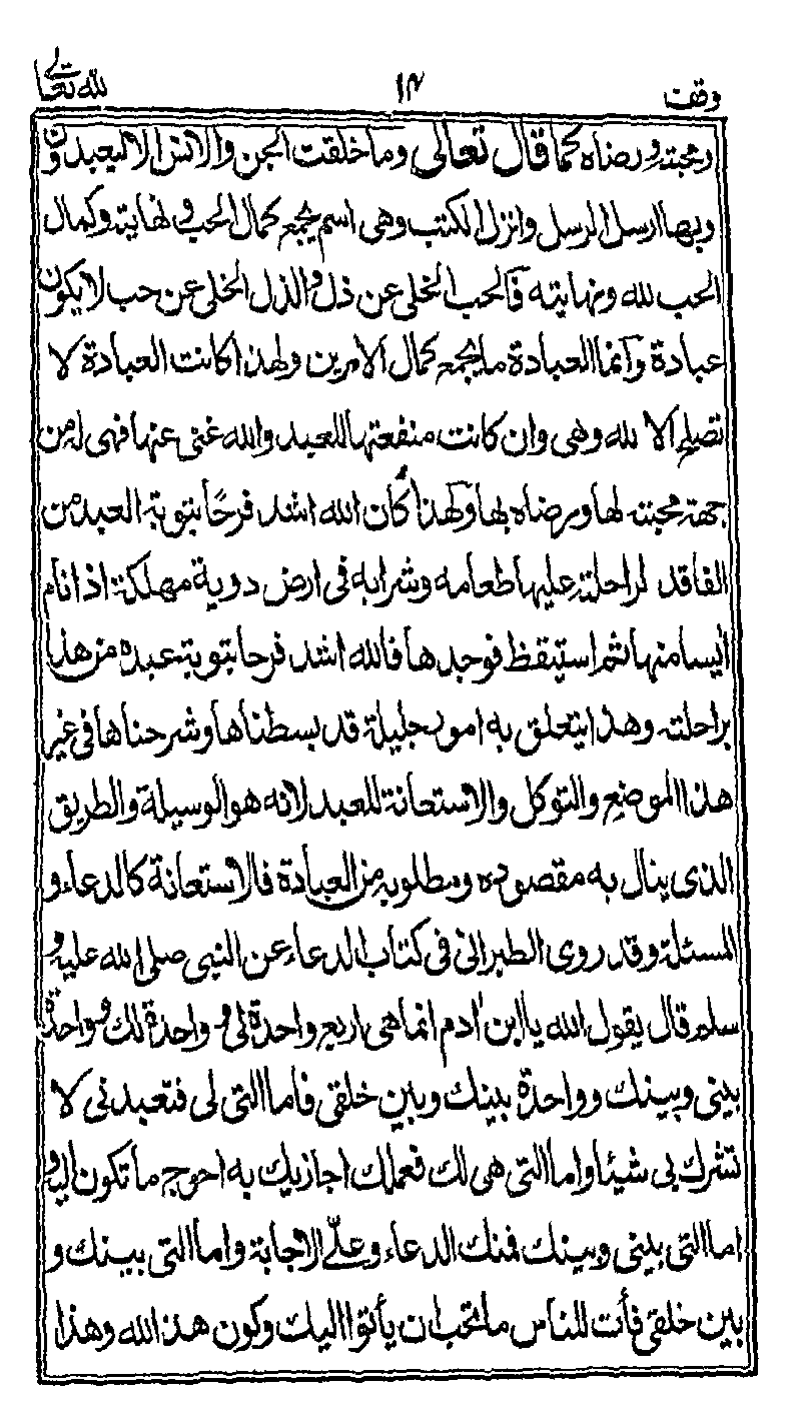 وقف ١٣ لله تعالى
ومحبته ورضاه كما قال تعالى وما خلقت الجن والانس الا ليعبدون
وبها ارسل الرسل وانزل الكتب وهى اسم يجمع كمال الحب ونهايته وكمال
الحب لله ونهايته فالحب الخلى عن ذل والذل الخلى عن حب لا يكون
عبادة وانما العبادة ما يجمع كمال الامرين ولهذا كانت العبادة لا
تصلح الا لله وهى وان كانت منفعتها للعبد والله غنى عنها فهى له من
جهة محبته لها ورضاه بها ولهذا كان الله اشد فرحًا بتوبة العبد من
الفاقد لراحلته عليها طعامه وشرابه فى ارض دوية مهلكة اذا نام
آيسا منها ثم استيقظ فوجدها فالله اشد فرحا بتوبة عبده من هذا
براحلته وهذا يتعلق به امور جليلة قد بسطناها وشرحناها فى غير
هذا الموضع والتوكل والاستعانة للعبد لانه هو الوسيلة والطريق
الذى ينال به مقصوده ومطلوبه من العبادة فالاستعانة كالدعاء و
المسئلة وقد روى الطبرانى فى كتاب الدعاء عن النبى صلى الله عليه و
سلم قال يقول الله يا ابن ادم انما هى اربع واحدة لى و واحدة لك وواحدة
بينى وبينك وواحدة بينك وبين خلقى فاما التى لى فتعبدنى لا
تشرك بى شيئا واما التى هى لك فعملك اجازيك به احوج ما تكون اليه و
اما التى بينى وبينك فمنك الدعاء وعلىّ الاجابة واما التى بينك و
بين خلقى فأت للناس ما تحب ان يأتوا اليك وكون هذا لله وهذا